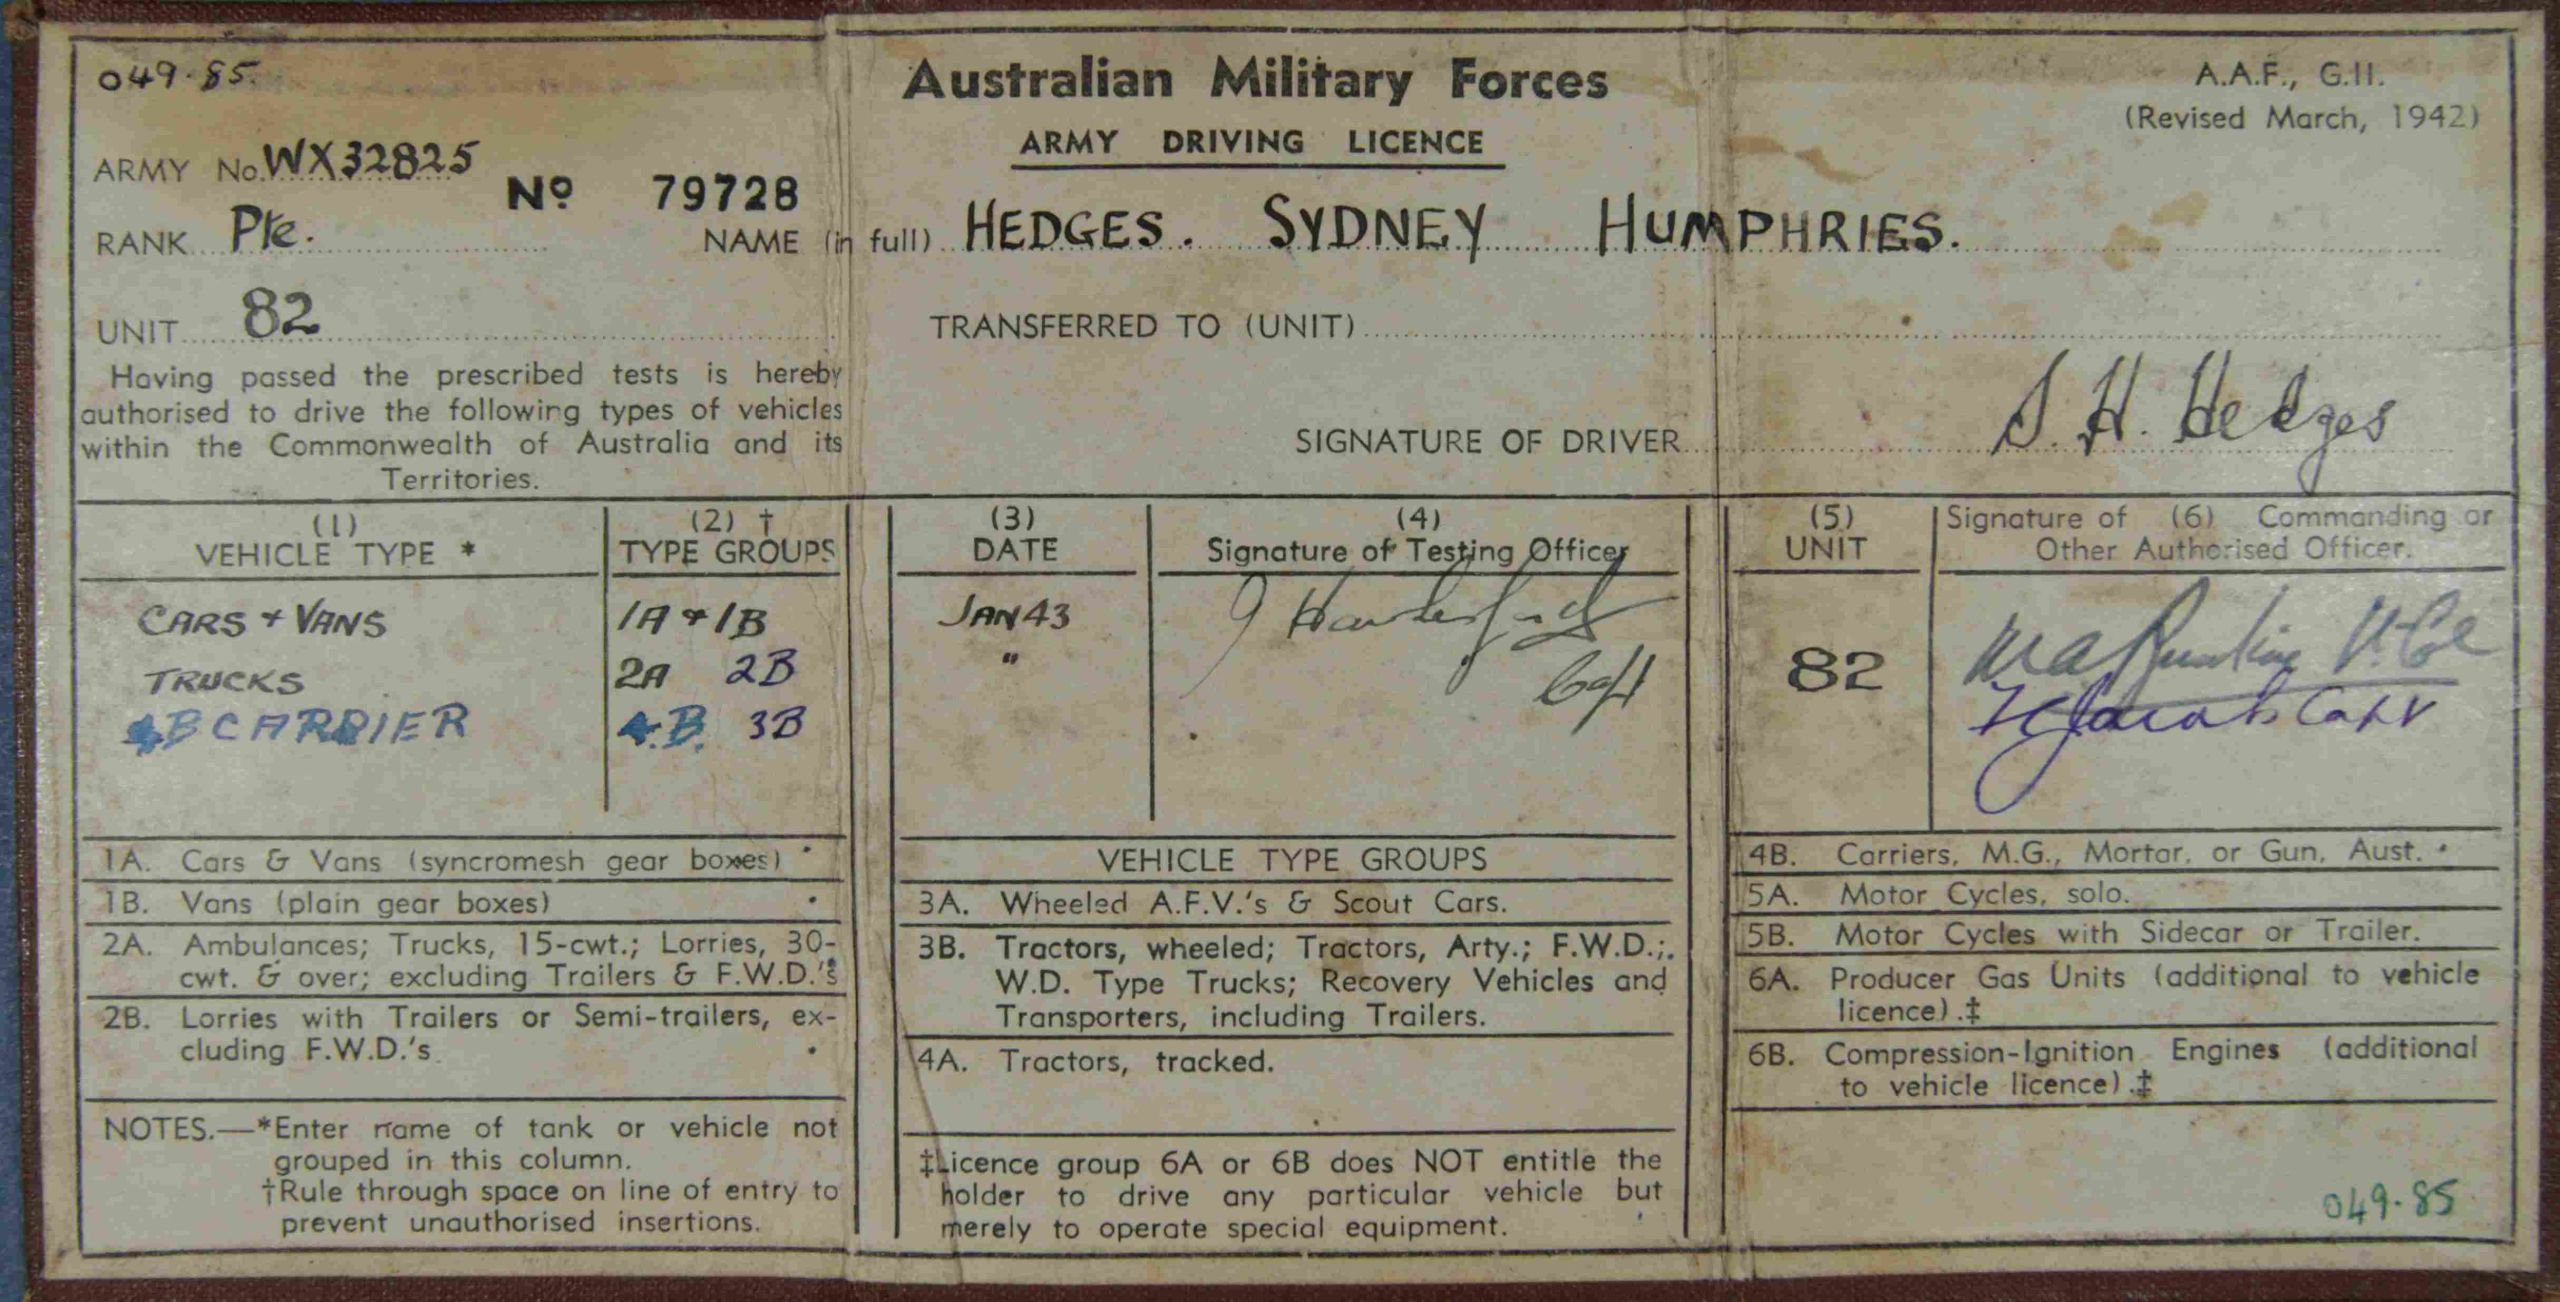 049.85.
Australian Military Forces
ARMY DRIVING LICENCE
A.A.F., G.11.
(Revised March, 1942)
ARMY No. WX32825
No 79728
RANK Pte.
NAME (in full) HEDGES. SYDNEY HUMPHRIES.
UNIT 82
TRANSFERRED TO (UNIT)
Having passed the prescribed tests is hereby
authorised to drive the following types of vehicles
within the Commonwealth of Australia and its
Territories.
SIGNATURE OF DRIVER S. H. Hedges
(1)
VEHICLE TYPE *
CARS & VANS
TRUCKS
4B CARRIER
(2) †
TYPE GROUPS
1A & 1B
2A 2B
4.B. 3B
(3)
DATE
JAN 43
"
(4)
Signature of Testing Officer
Capt
(5)
UNIT
82
Signature of (6) Commanding or
Other Authorised Officer.
Capt
1A. Cars & Vans (syncromesh gear boxes)
1B. Vans (plain gear boxes)
2A. Ambulances; Trucks, 15-cwt.; Lorries, 30-
cwt. & over; excluding Trailers & F.W.D.'s
2B. Lorries with Trailers or Semi-trailers, ex-
cluding F.W.D.'s
NOTES.—*Enter name of tank or vehicle not
grouped in this column.
†Rule through space on line of entry to
prevent unauthorised insertions.
VEHICLE TYPE GROUPS
3A. Wheeled A.F.V.'s & Scout Cars.
3B. Tractors, wheeled; Tractors, Arty.; F.W.D.;.
W.D. Type Trucks; Recovery Vehicles and
Transporters, including Trailers.
4A. Tractors, tracked.
‡Licence group 6A or 6B does NOT entitle the
holder to drive any particular vehicle but
merely to operate special equipment.
4B. Carriers, M.G., Mortar, or Gun, Aust.
5A. Motor Cycles, solo.
5B. Motor Cycles with Sidecar or Trailer.
6A. Producer Gas Units (additional to vehicle
licence).‡
6B. Compression-Ignition Engines (additional
to vehicle licence).‡
049.85